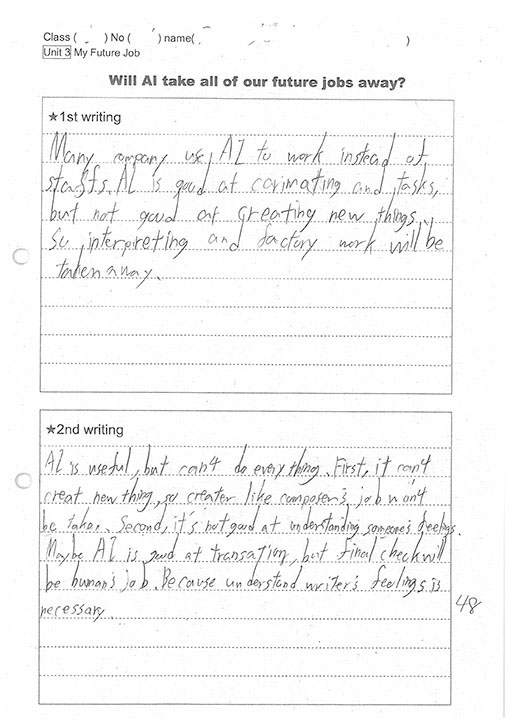 Class ( ) No ( ) name( )
Unit 3 My Future Job
Will AI take all of our future jobs away?
★1st writing
Many company use, AI to work instead of
staffs. AI is good at and, tasks,
but not good at creating new things.
So, interpreting and factory work will be
taken away.
★2nd writing
AI is useful, but can't do everything. First, it can't
creat new thing, so creater like composer's job won't
be taken. Second, it's not good at understanding someone's feelings.
Maybe AI is good at transation, but final check will
be human's job. Because understand writer's feelings is
necessary.
48